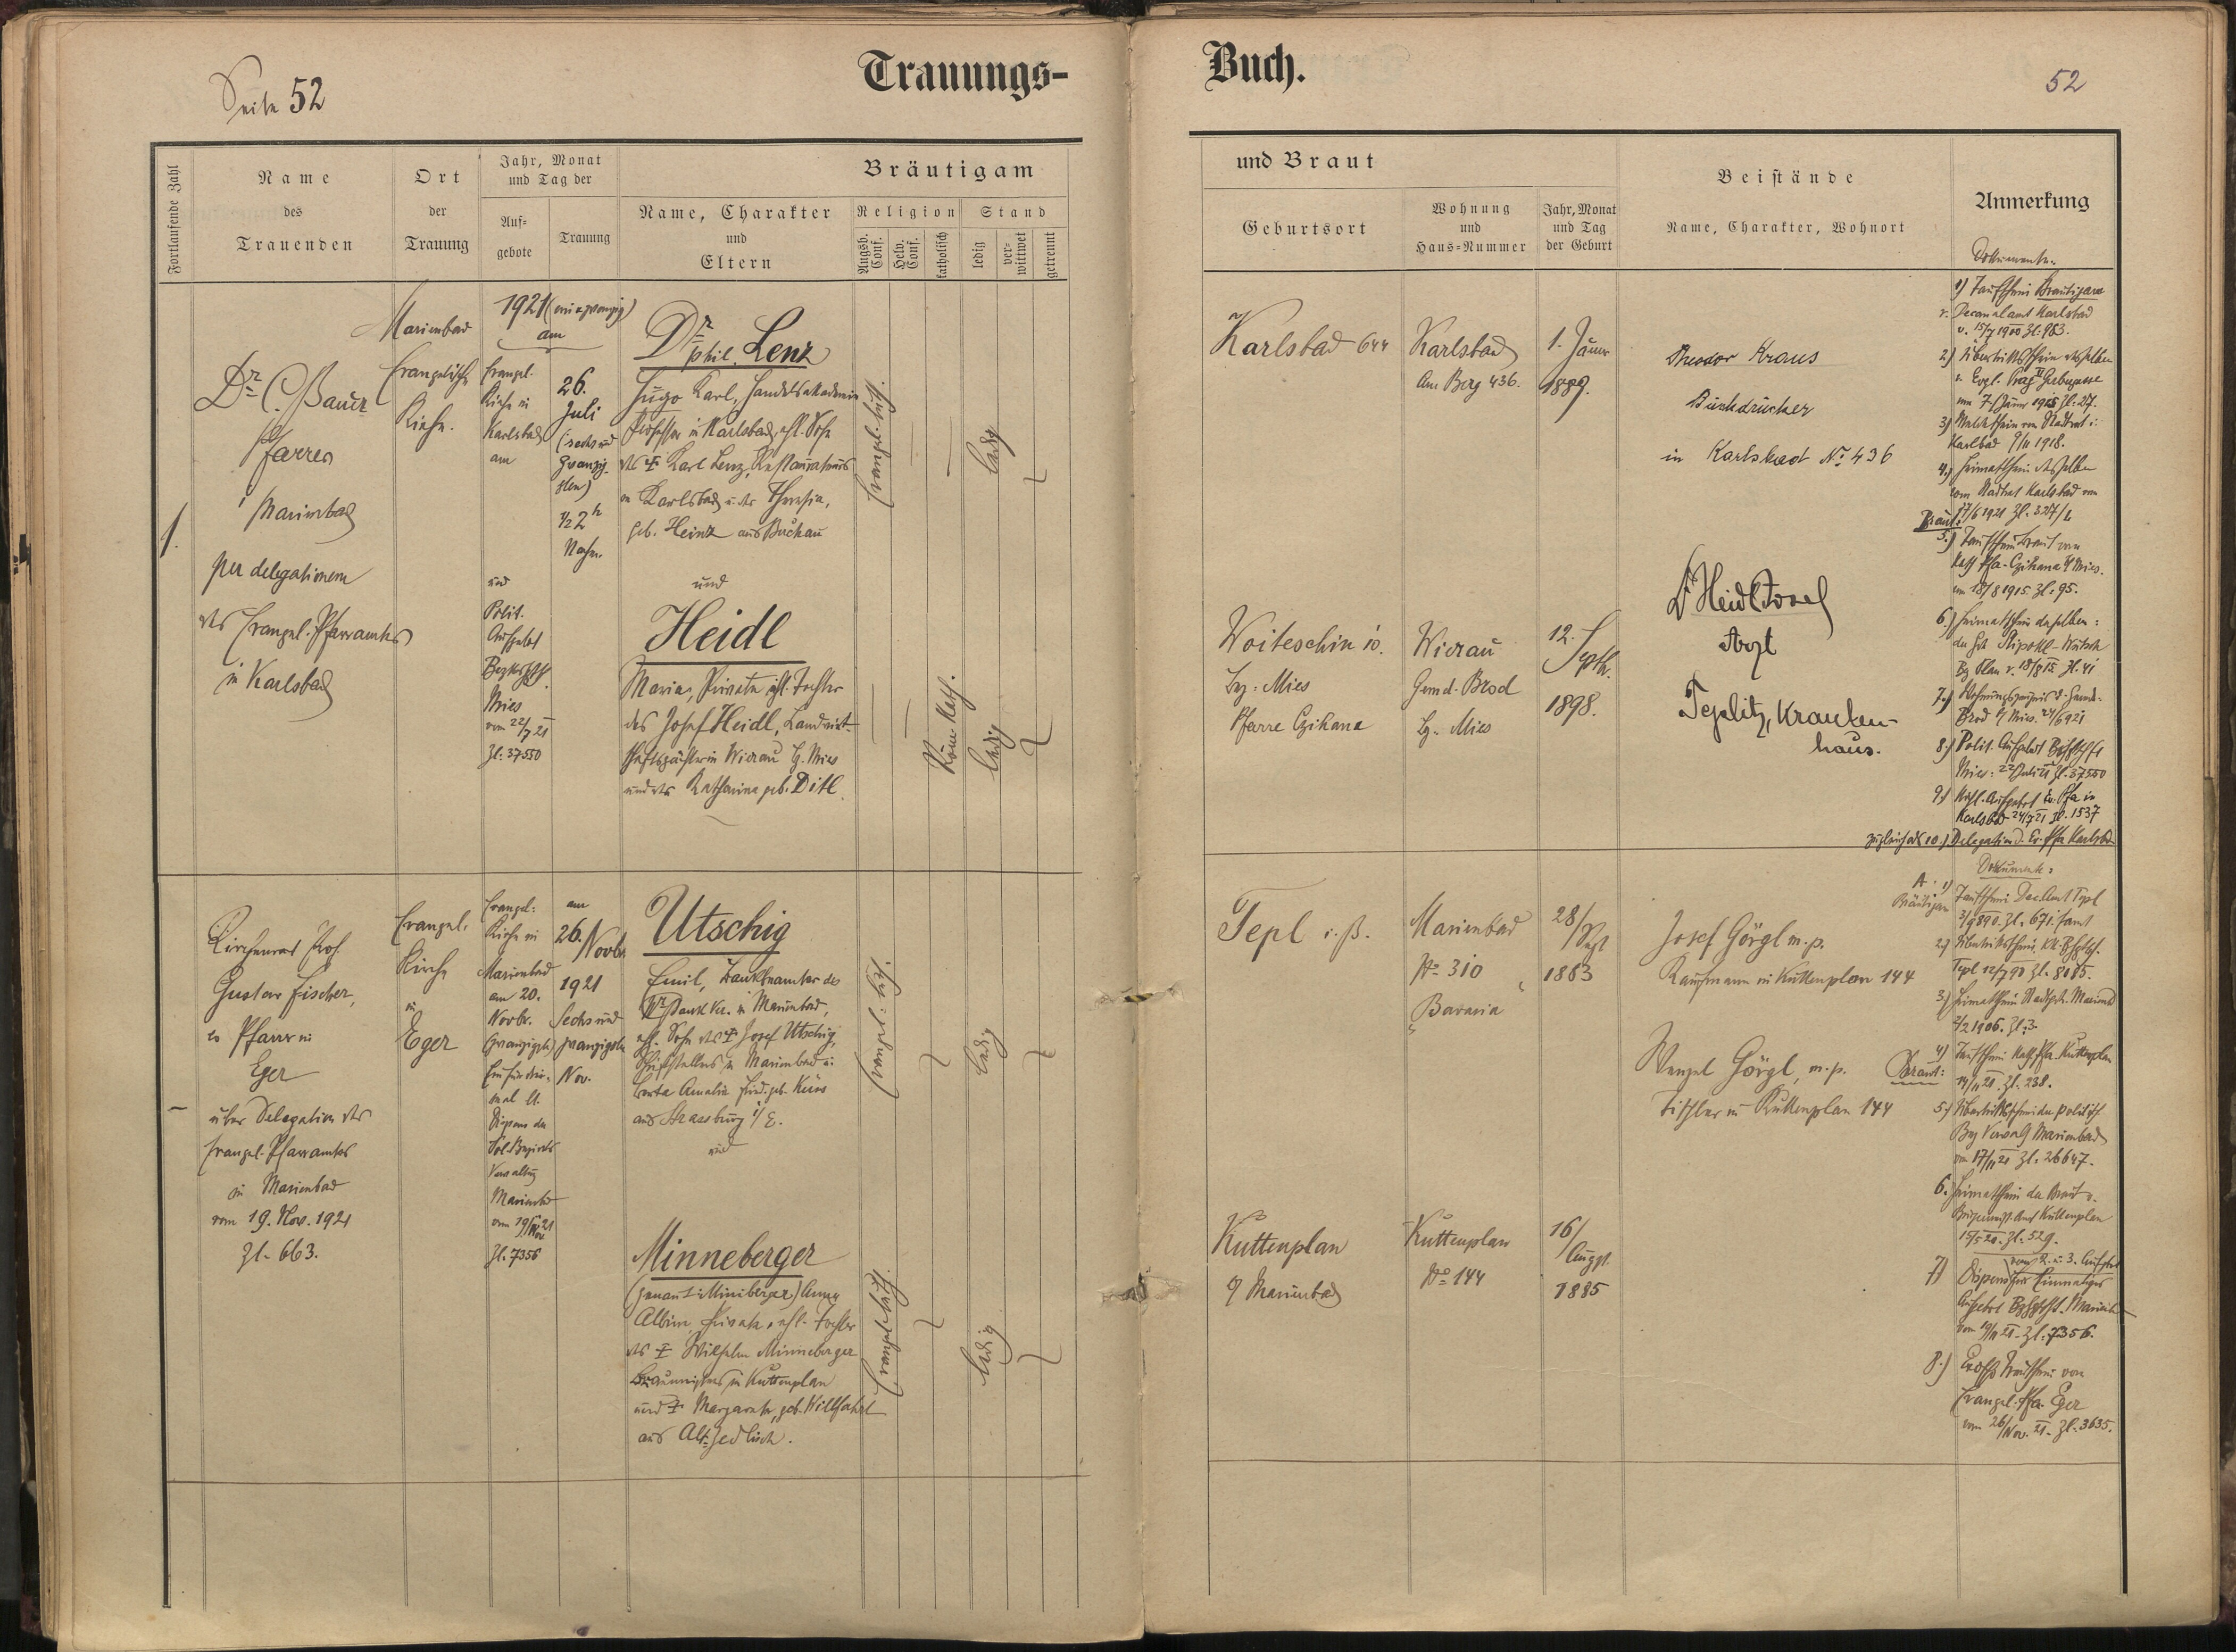 Seite 52
Trauungs-
Buch.
52
Fortlaufende Zahl
Name
des
Trauenden
Ort
der
Trauung
Jahr, Monat
und Tag der
Auf-
gebote
Trauung
Bräutigam
Name, Charakter
und
Eltern
Religion
Augsb. Conf.
Helv. Conf.
katholisch
Stand
ledig
ver-
wittwet
getrennt
und Braut
Geburtsort
Wohnung
und
Haus-Nummer
Jahr, Monat
und Tag
der Geburt
Beistände
Name, Charakter, Wohnort
Anmerkung
1.
Dr. C. Bauer
Pfarrer
Marienbad
per delegationem
des Evangel. Pfarramtes
in Karlsbad
Marienbad
Evangelische
Kirche.
1921
am
Evangel.
Kirche in
Karlsbad
am
und
Polit.
Aufgebot
Mies
vom 22/7 21
Zl: 37550
26.
Juli
(sechsund
zwanzig-
sten)
1/2 2h
Nachm.
Dr. phil. Lenz
Hugo Karl, Handelsakademie
Professor in Karlsbad, ehl. Sohn
des Karl Lenz, Restaurateurs
in Karlsbad u. der Theresia,
geb. Heinz aus Buchau
und
Heidl
Maria, Private, ehl. Tochter
des Josef Heidl, Landwirt-
schaftspächter in Wierau Bz. Mies
und der Katharina geb. Ditl.
ledig
Röm. Kath.
ledig
Karlsbad 644
Karlsbad
Am Berg 436.
1. Jänner
1889.
Theodor Kraus
Buchdrucker
in Karlsbad No. 436
Woiteschin
Bz: Mies
Pfarre Czihana
Wierau
Gemd. Brod
Bz. Mies
12.
Septb.
1898.
Dr Heidl Josef
Arzt
Teplitz, Kranken-
haus.
Dokumente:
1) Taufschein Bräutigam
v. Decanalamt Karlsbad
v. 15/7 1900 Zl: 983.
2) Übertrittsschein desselben
vom 7. Jänner 1915 Zl: 27.
Karlsbad 9/11 1918.
4.) Heimatschein desselben
vom Stadtrat Karlsbad vom
17/6 1921 Zl: 327/
Braut:
5.) Taufschein Braut von
Kath. Pfa. Czihana Mies.
vom 18/8 1915. Zl: 95.
6.) Heimatschein derselben:
Bz Plan v. 18/8 15 Zl. 41
Brod Mies. 24/6 921
8.) Polit. Aufgebot
Mies: 22 Juli 21 Zl. 37550
9.) Kirchl. Aufgebot Ev. Pfa in
Karlsbad 24/7 21 Zl. 1537
zugleich als 10.) Delegation d. Ev. Pfa Karlsbad
Kirchenrat Prof.
Gustav Fischer,
ev. Pfarrer in
Eger
über Delegation des
Evangel. Pfarramtes
in Marienbad
vom 19. Nov. 1921
Zl. 663.
Evangel.
Kirche
in
Eger
Evangel:
Kirche in
Marienbad
am 20.
Novbr.
Ein für drei-
mal lt.
Dispens der
Pol. Bezirks
Verwaltg
Marienbad
vom 19/Nov 21
Zl: 7356
am
26. Novbr.
1921
Sechsund
zwanzigsten
Nov.
Utschig
Emil, Bankbeamter der
in Marienbad,
ehl. Sohn des Josef Utschig,
in Marienbad u.
aus Strassburg i/E.
und
Minneberger
(genannt: Miniberger) Anna
Albine, Private, ehl. Tochter
des Wilhelm Minneberger
Braumeisters in Kuttenplan
und Margarete, geb. Willfahrt
aus Alt-Zedlisch.
ledig
ledig
Tepl i. B.
Marienbad
No 310
Bavaria
28/
Sept
1883
Josef Görgl m. p.
Kaufmann in Kuttenplan 144
Wenzel Görgl, m. p.
Tischler in Kuttenplan 144
Kuttenplan
Marienbad
Kuttenplan
No 144
16/
August
1885
Dokumente:
A. 1)
Bräutigam
Taufschein Dec. Amt Tepl
Zl. 671.
Tepl 12/7 90 Zl. 8185.
2/2 1906. Zl: 3.
Braut:
4) Taufschein Kath. Pfa. Kuttenplan
14/11 21. Zl. 238.
5.) Übertrittsschein der politisch.
Bez Verwaltg Marienbad
vom 17/11 21 Zl. 26647.
6.) Heimatschein der Braut v.
Bürgermst. Amt Kuttenplan
Zl. 529.
vom 2. u. 3. Aufgebot
7) Dispens für Einmaliges
Aufgebot Marienbad
vom 19/11 21. Zl: 7356.
8.) Trauschein von
Evangel. Pfa. Eger
vom 26/Nov. 21. Zl: 3635.